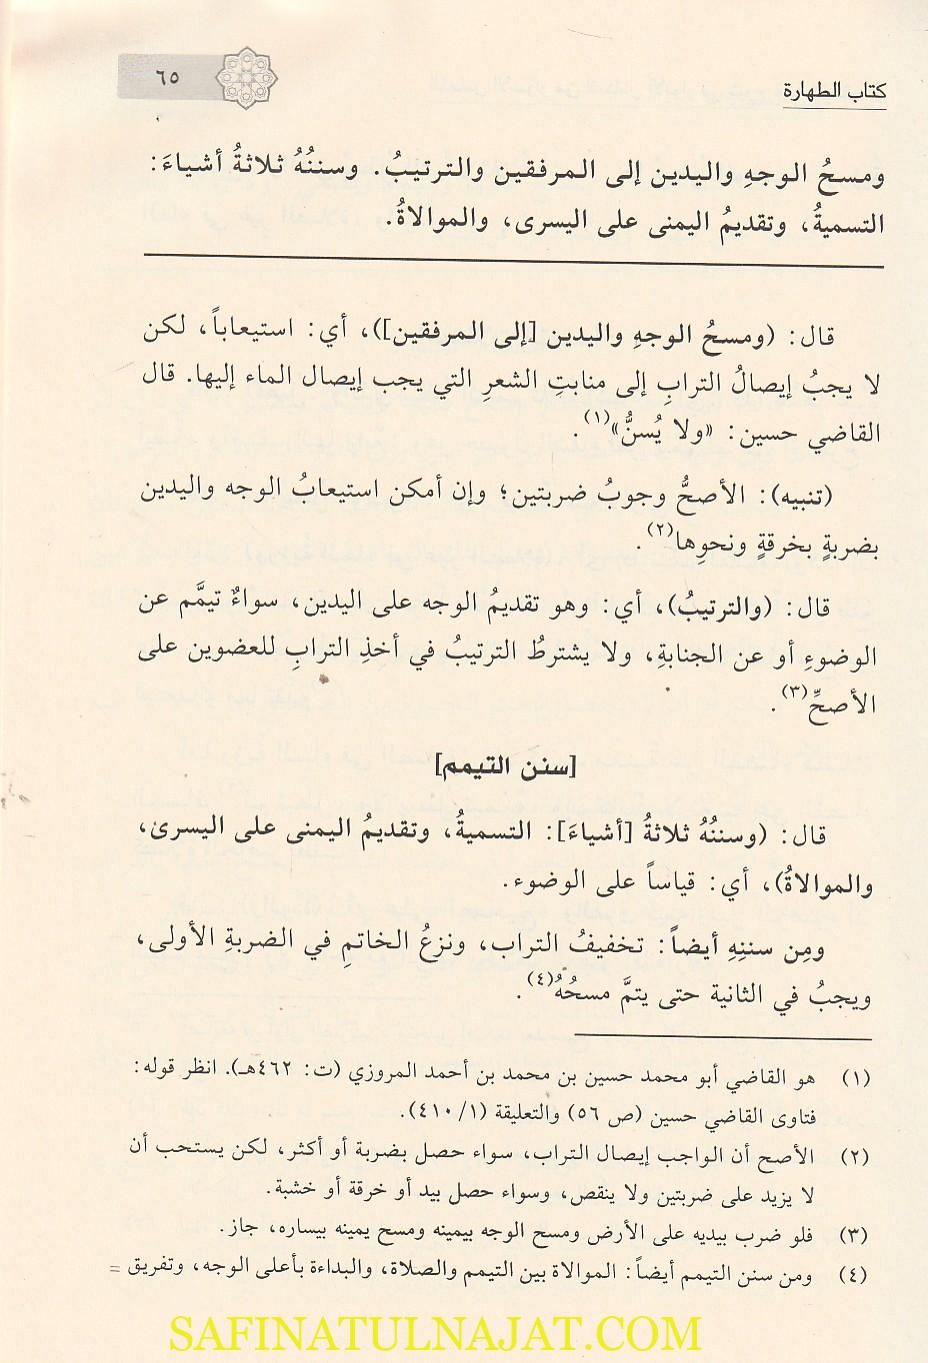 كتاب الطهارة
٦٥
ومسحُ الوجهِ واليدين إلى المرفقين والترتيبُ. وسننُهُ ثلاثةُ أشياءَ:
التسميةُ، وتقديمُ اليمنى على اليسرى، والموالاةُ.
قال: (ومسحُ الوجهِ واليدين [إلى المرفقين])، أي: استيعاباً، لكن
لا يجبُ إيصالُ الترابِ إلى منابتِ الشعرِ التي يجب إيصال الماء إليها. قال
القاضي حسين: «ولا يُسنُّ»(١).
(تنبيه): الأصحُّ وجوبُ ضربتين؛ وإن أمكن استيعابُ الوجه واليدين
بضربةٍ بخرقةٍ ونحوِها(٢).
قال: (والترتيبُ)، أي: وهو تقديمُ الوجه على اليدين، سواءٌ تيمَّم عن
الوضوءِ أو عن الجنابةِ، ولا يشترطُ الترتيبُ في أخذِ الترابِ للعضوين على
الأصحِّ(٣).
[سنن التيمم]
قال: (وسننُهُ ثلاثةُ [أشياءَ]: التسميةُ، وتقديمُ اليمنى على اليسرىٰ،
والموالاةُ)، أي: قياساً على الوضوء.
ومِن سننِهِ أيضاً: تخفيفُ التراب، ونزعُ الخاتمِ في الضربةِ الأولى،
ويجبُ في الثانية حتى يتمَّ مسحُهُ(٤).
(١) هو القاضي أبو محمد حسين بن محمد بن أحمد المروزي (ت: ٤٦٢هـ). انظر قوله:
فتاوى القاضي حسين (ص ٥٦) والتعليقة (١/ ٤١٠).
(٢) الأصح أن الواجب إيصال التراب، سواء حصل بضربة أو أكثر، لكن يستحب أن
لا يزيد على ضربتين ولا ينقص، وسواء حصل بيد أو خرقة أو خشبة.
(٣) فلو ضرب بيديه على الأرض ومسح الوجه بيمينه ومسح يمينه بيساره، جاز.
(٤) ومن سنن التيمم أيضاً: الموالاة بين التيمم والصلاة، والبداءة بأعلى الوجه، وتفريق =
SAFINATULNAJAT.COM